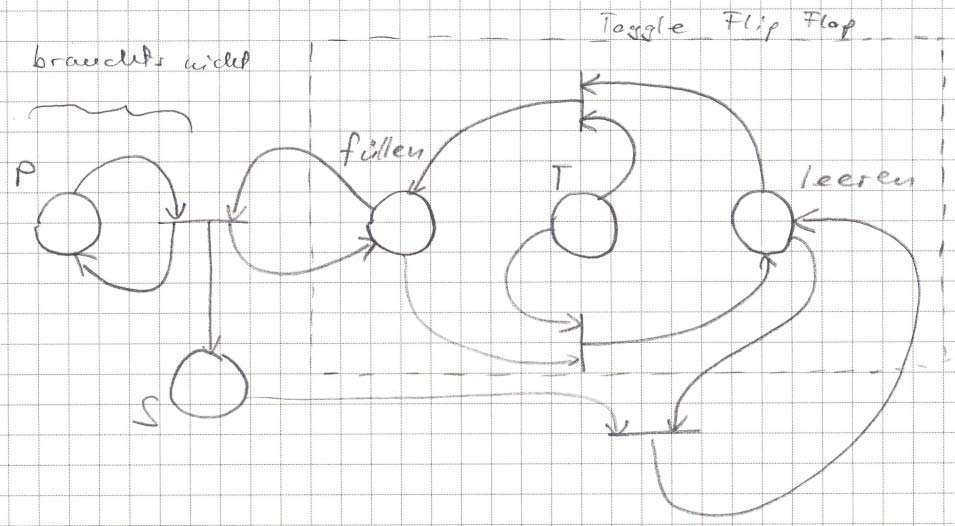 Toggle Flip Flop
brauchts nicht
füllen
P
T
leeren
S